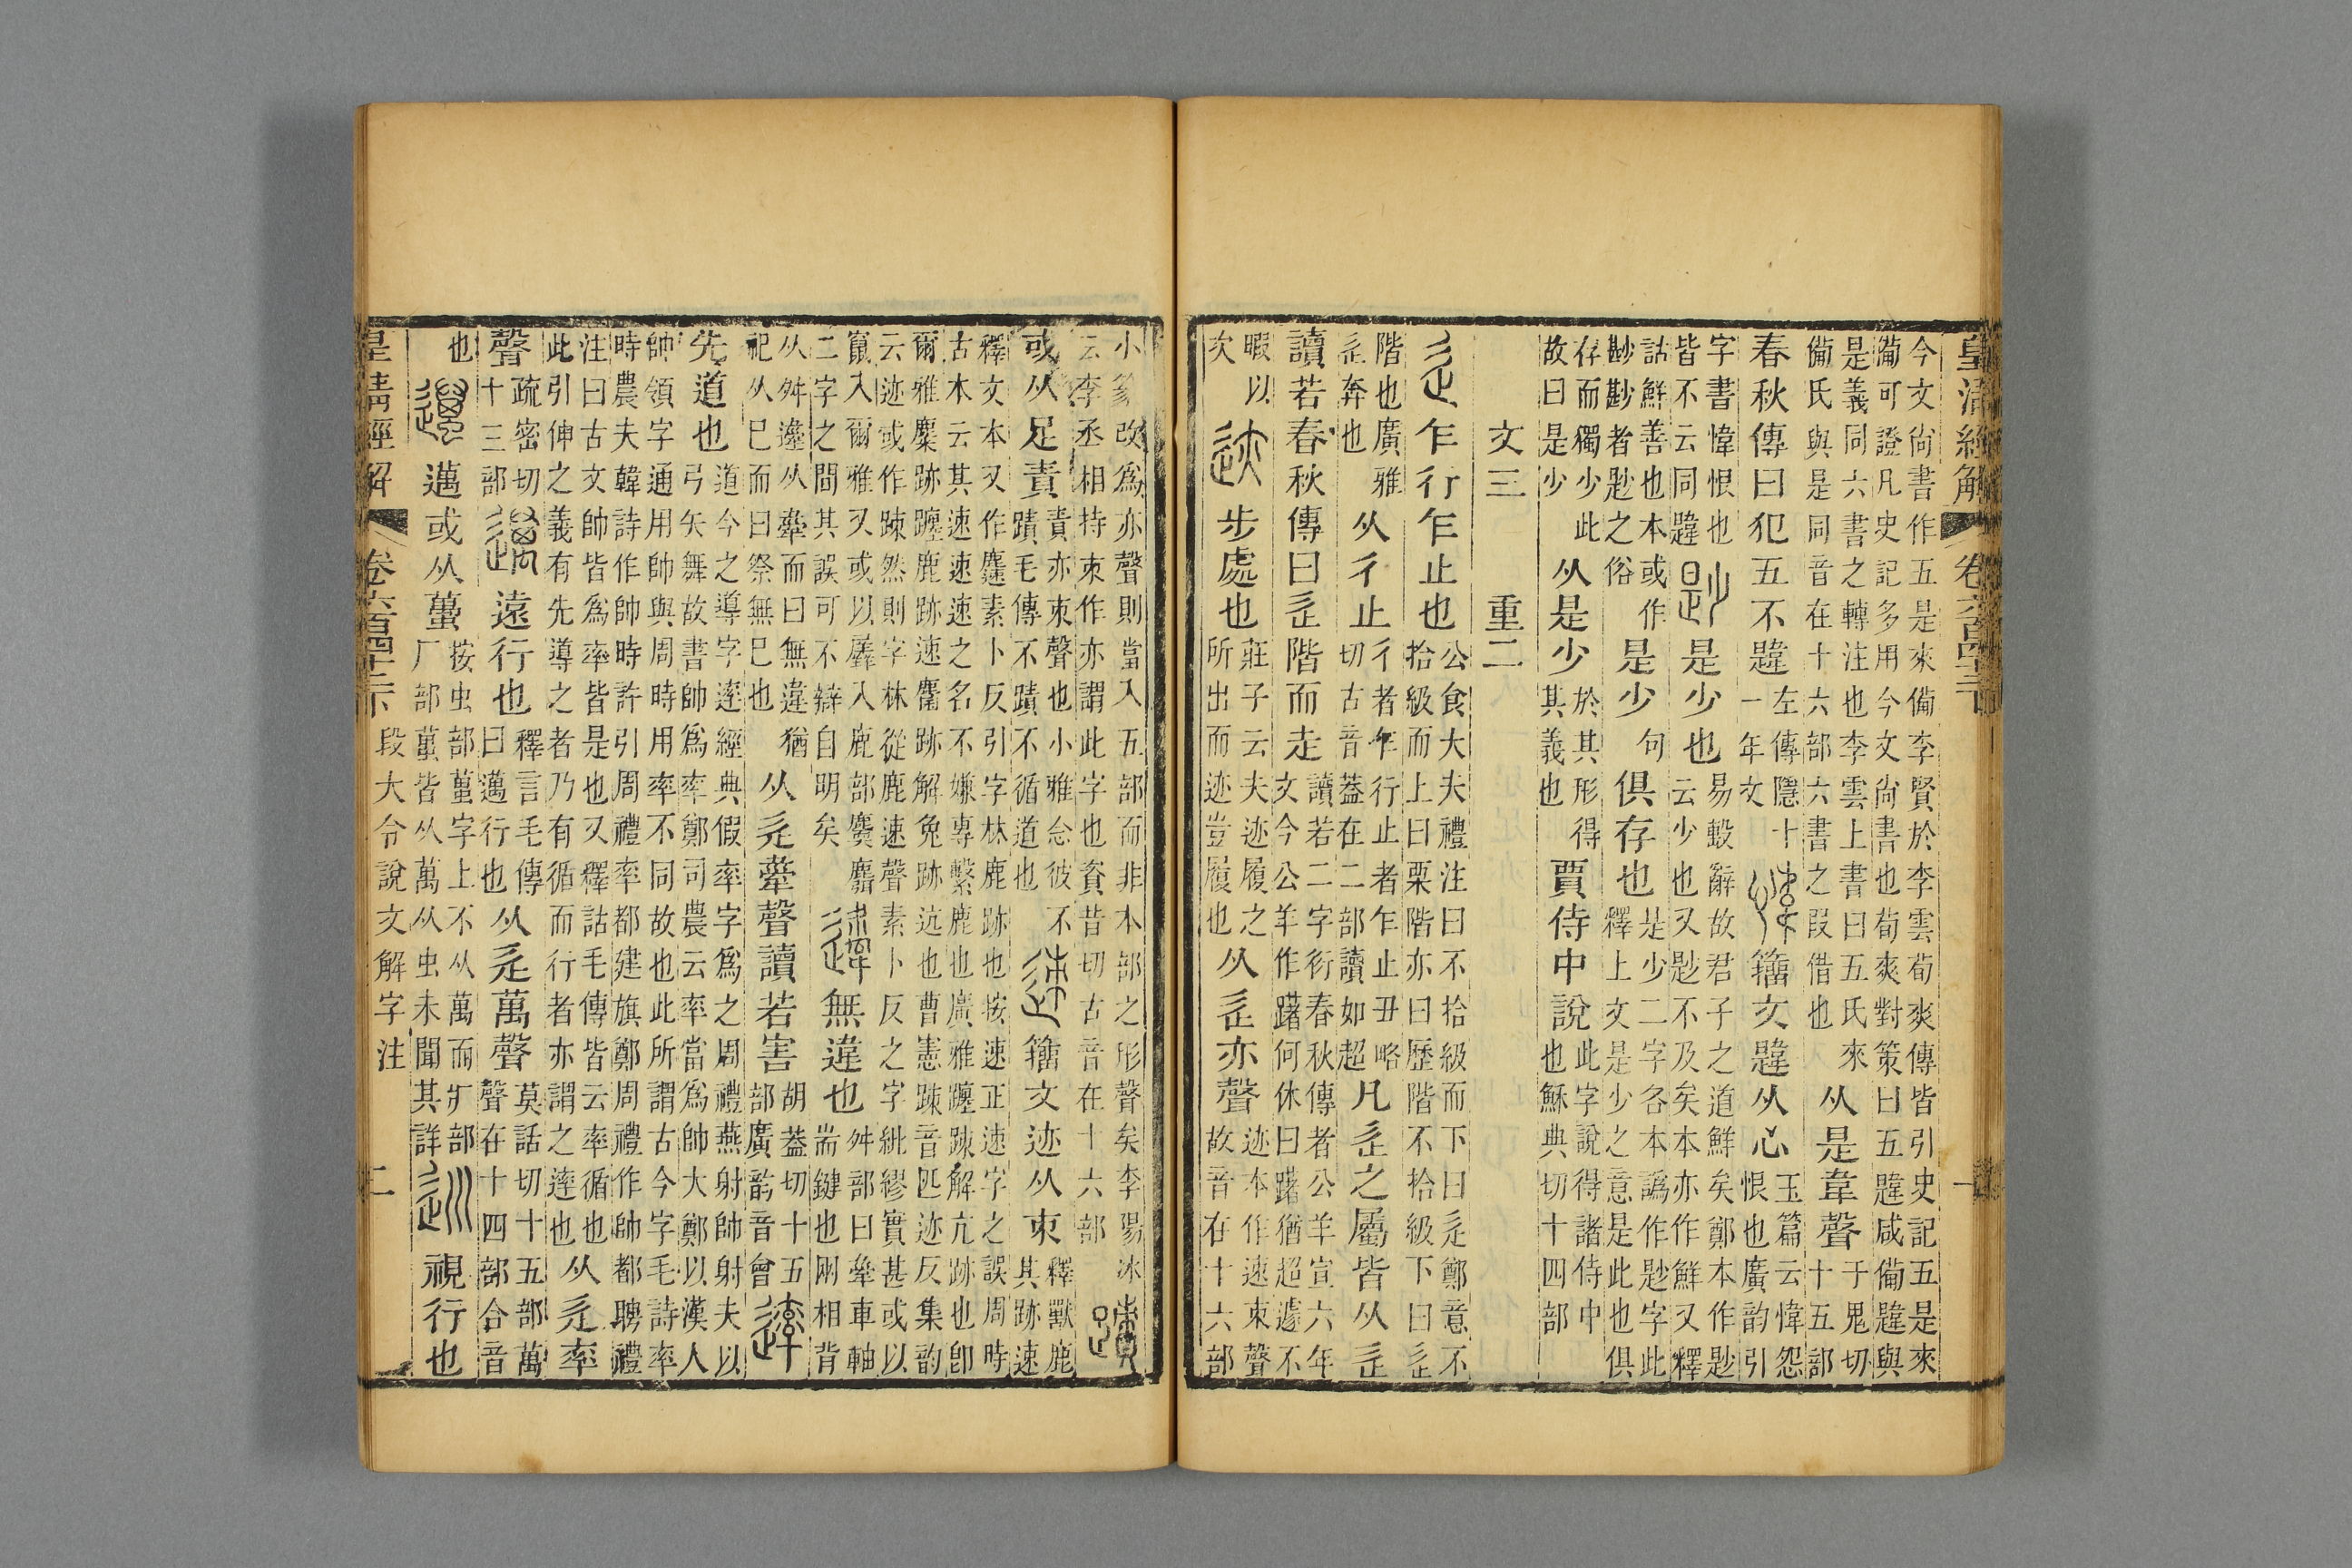 皇清經解 卷六百四十二下 一
今文尚書作五是來備李賢於李雲荀爽傳皆引史記五是來備可證凡史記多用今文尚書也荀爽對策曰五韙咸備韙與
是義同六書之轉注也李雲上書曰五氏來備氏與是同音在十六部六書之叚借也从是韋聲于鬼切十五部
春秋傳曰犯五不韙左傳隱十一年文籒文韙从心玉篇云愇怨恨也廣韵引
字書愇恨也皆不云同韙尟是少也易毄辭故君子之道鮮矣鄭本作尟云少也又尟不及矣本亦作鮮又釋
詁鮮善也本或作尠尠者尟之俗是少句俱存也是少二字各本譌作尟字此釋上文是少之意是此也俱
存而獨少此故曰是少从是少於其形得其義也賈侍中說此字說得諸侍中也穌典切十四部
文三 重二
辵乍行乍止也公食大夫禮注曰不拾級而下曰辵鄭意不拾級而上曰栗階亦曰歷階不拾級下曰辵
階也廣雅辵奔也从彳止彳者乍行止者乍止丑略切古音葢在二部讀如超凡辵之屬皆从辵
讀若春秋傳曰辵階而走讀若二字衍春秋傳者公羊宣六年文今公羊作躇何休曰躇猶超遽不
暇以次迹步處也莊子云夫迹履之所出而迹豈履也从辵亦聲迹本作速束聲故音在十六部
小篆改爲亦聲則當入五部而非本部之形聲矣李陽冰云李丞相持束作亦謂此字也資昔切古音在十六部蹟
或从足責責亦束聲也小雅念彼不蹟毛傳不蹟不循道也籒文迹从束釋獸鹿其跡速
釋文本又作麤素卜反引字林鹿跡也按速正速字之誤周時古本云其速速速之名不嫌專繫鹿也廣雅躔踈解亢跡也卽
爾雅麋跡躔鹿跡速麕跡解兔跡迒也曹憲踈音匹迹反集韵云迹或作踈然則字林從鹿速聲素卜反之字紕繆實甚或以
竄入爾雅又或以廲入鹿部麌麝二字之間其誤可不辯自明矣無違也舛部曰舝車軸耑鍵也兩相背
从舛邆从舝而曰無違猶祀从巳而曰祭無巳也从辵舝聲讀若害胡葢切十五部廣韵音會
先道也道今之導字㳠經典假率字爲之周禮燕射帥射夫以弓矢舞故書帥爲率鄭司農云率當爲帥大鄭以漢人
帥領字通用帥與周時用率不同故也此所謂古今字毛詩率時農夫韓詩作帥時許引周禮率都建旗鄭周禮作帥都聘禮
注曰古文帥皆爲率皆是也又釋詁毛傳皆云率循也此引伸之義有先導之者乃有循而行者亦謂之㳠也从辵率
聲疏密切十三部邁遠行也釋言毛傳曰邁行也从辵萬聲莫話切十五部萬聲在十四部合音
也邁或从蠆按虫部蠆字上不从萬而厂部厲蠆皆从萬从虫未聞其詳巡視行也
皇清經解 卷六百四十二下 段大令說文解字注 二